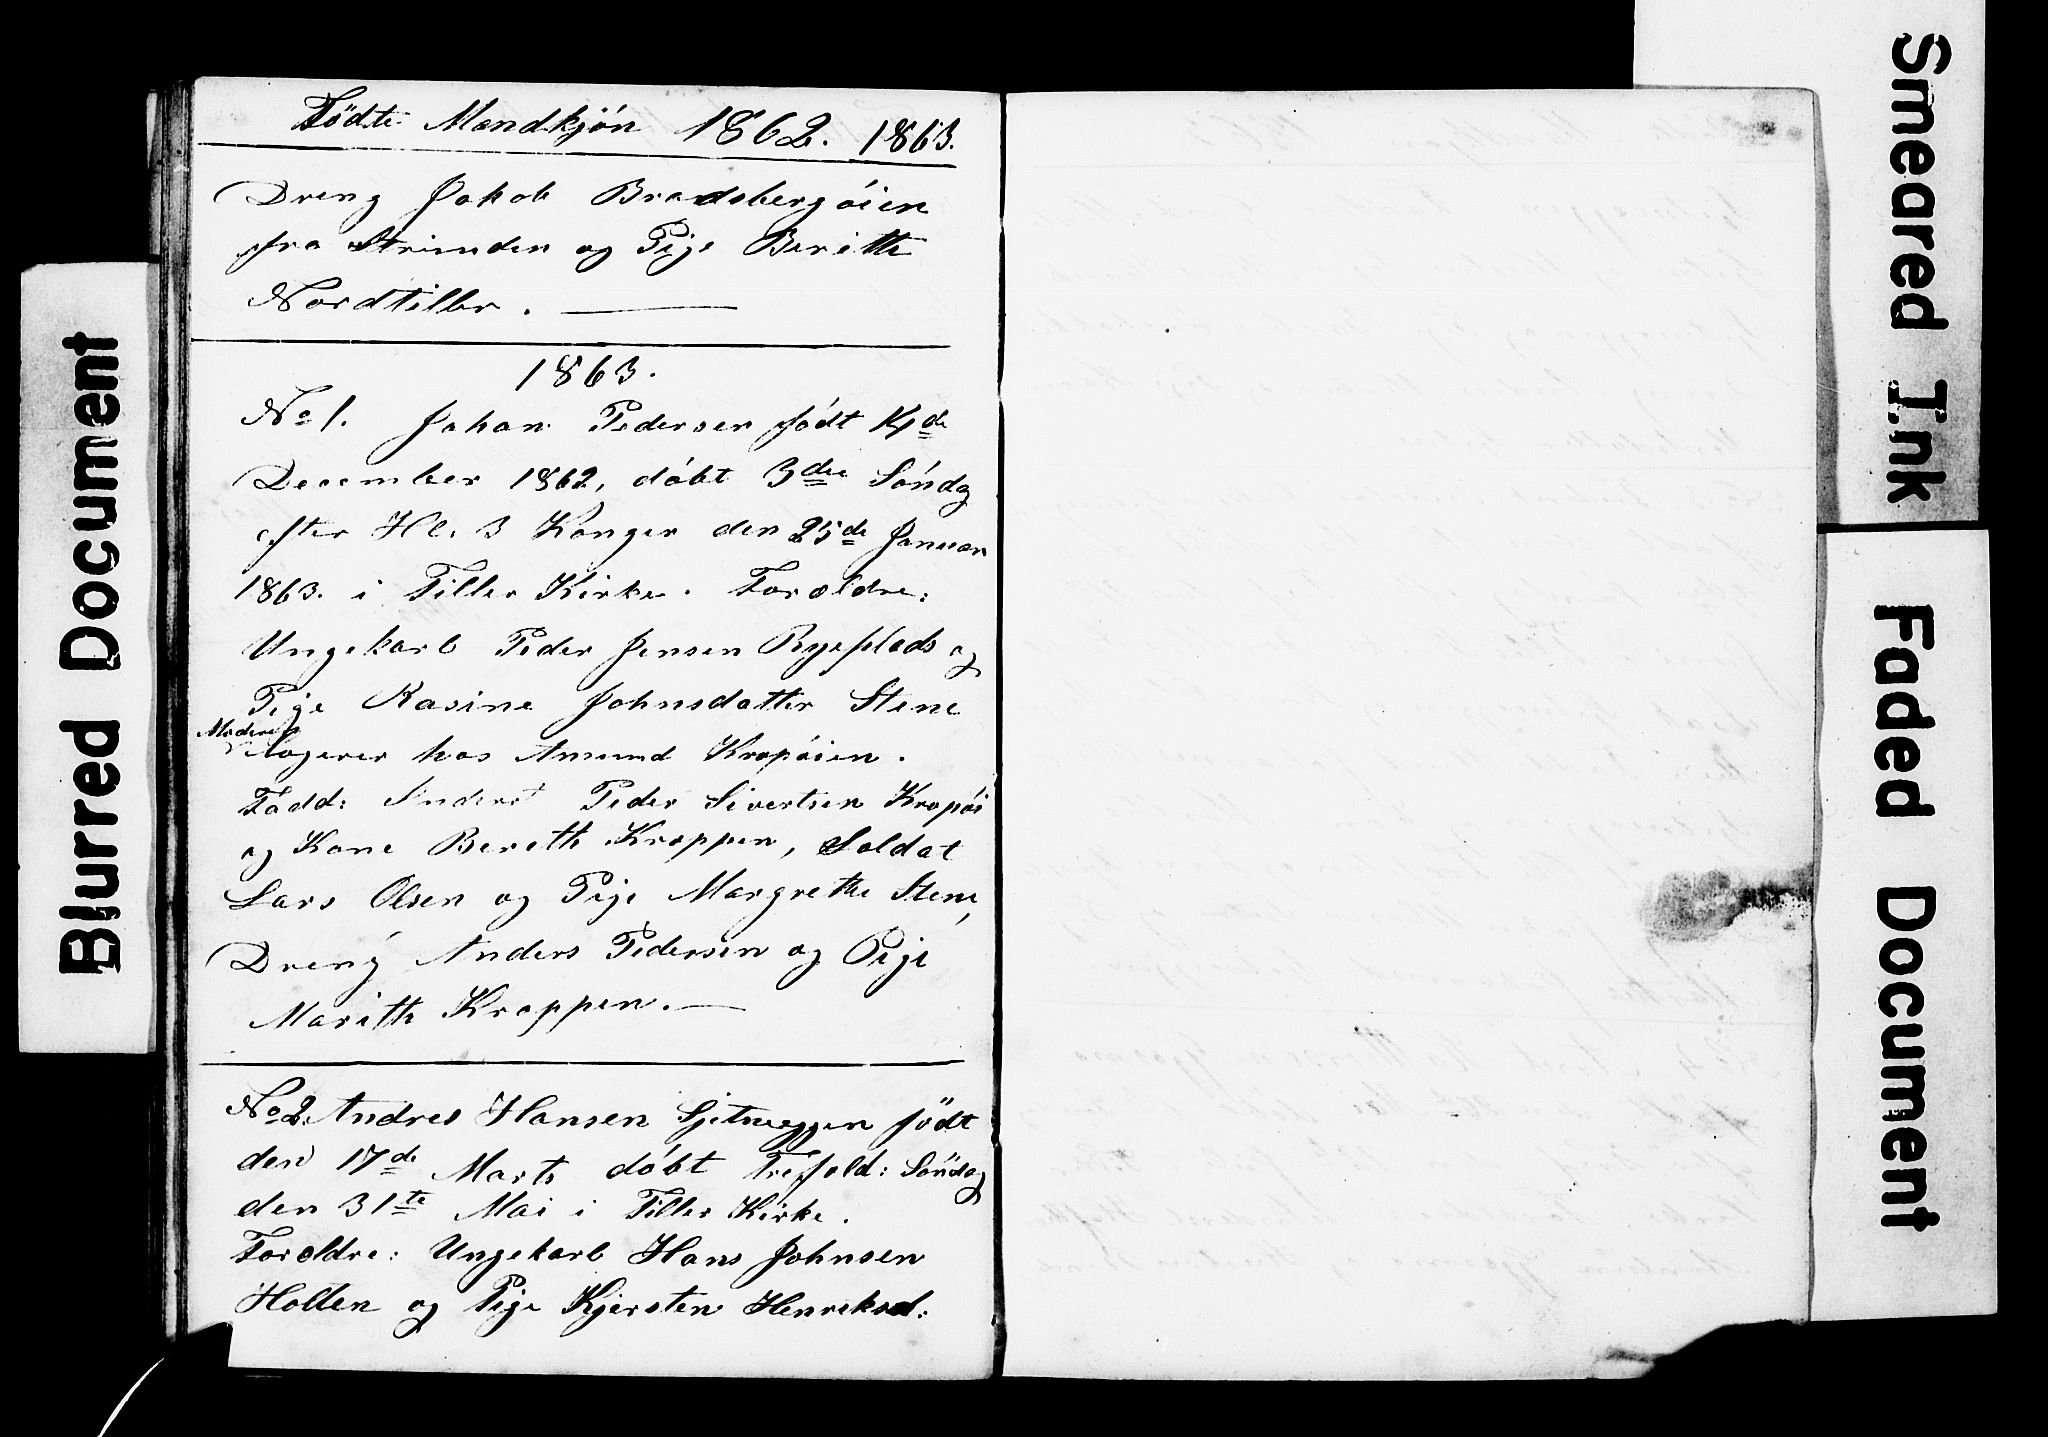 Födte Mandkjön 1862. 1863.
Dreng Jakob Bradsbergöien
fra Strinden og Pige Berithe
Nordtiller.
1863.
No 1. Johan Pedersen födt 14de
December 1862, döbt 3die Söndag
efter Hl. 3 Konger den 25de Januar
1863. i Tiller Kirke. Forældre:
Ungekarl Peder Jensen Ryeplads og
Pige Rasine Johnsdatter Stene
Moderen
logerer hos Amund Kropöien.
Fadd: Peder Sivertsen Kropöi
og Kone Berethe Kroppen, Soldat
Lars Olsen og Pige Margrethe Stene,
Dreng Anders Pedersen og Pige
Marithe Kroppen.
No 2. Andres Hansen Sjetneggen födt
den 17de Marts döbt Trefold: Söndag
den 31te Mai i Tiller Kirke.
Forældre: Ungekarl Hans Johnsen
Holten og Pige Kjersten Henriksd:
Blurred Document
Smeared Ink
Faded Document